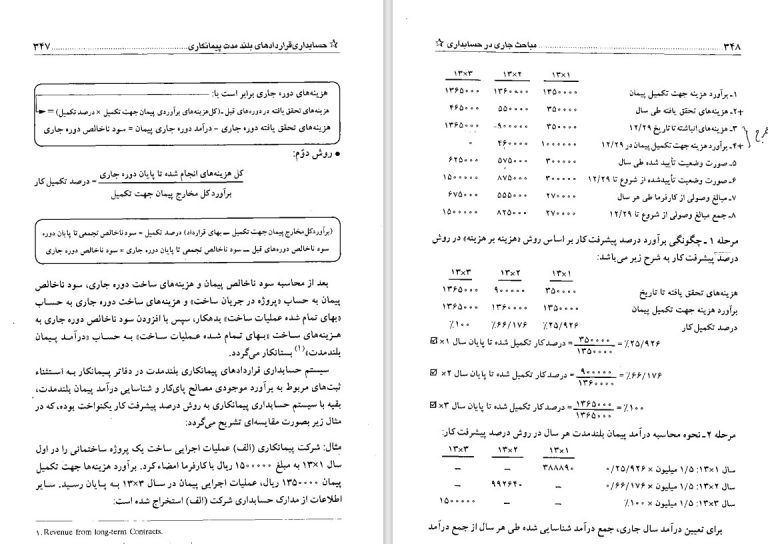 ☆ حسابداری قراردادهای بلند مدت پیمانکاری ........ ۳۴۷
هزینه‌های دوره جاری برابر است با:
هزینه‌های تحقق یافته در دوره‌های قبل ـ (کل هزینه‌های برآوردی پیمان جهت تکمیل × درصد تکمیل) =
هزینه‌های تحقق یافته دوره جاری – درآمد دوره جاری پیمان = سود ناخالص دوره جاری
• روش دوّم:
درصد تکمیل کار = کل هزینه‌های انجام شده تا پایان دوره جاری
برآورد کل مخارج پیمان جهت تکمیل
(برآورد کل مخارج پیمان جهت تکمیل – بهای قرارداد) درصد تکمیل = سود ناخالص تجمعی تا پایان دوره
سود ناخالص دوره‌های قبل – سود ناخالص تجمعی تا پایان دوره جاری = سود ناخالص دوره جاری
بعد از محاسبه سود ناخالص پیمان و هزینه‌های ساخت دوره جاری، سود ناخالص
پیمان به حساب «پروژه در جریان ساخت» و هزینه‌های ساخت دوره جاری به حساب
«بهای تمام شده عملیات ساخت» بدهکار، سپس با افزودن سود ناخالص دوره جاری به
هزینه‌های ساخت «بهای تمام شده عملیات ساخت» به حساب «درآمد پیمان
بلندمدت»(۱) بستانکار می‌گردد.
سیستم حسابداری قراردادهای پیمانکاری بلندمدت در دفاتر پیمانکار به استثناء
ثبت‌های مربوط به برآورد موجودی مصالح پای‌کار و شناسایی درآمد پیمان بلندمدت،
بقیه با سیستم حسابداری پیمانکاری به روش درصد پیشرفت کار یکنواخت بوده، که در
مثال زیر بصورت مقایسه‌ای تشریح می‌گردد:
مثال: شرکت پیمانکاری (الف) عملیات اجرایی ساخت یک پروژه ساختمانی را در اول
سال ۱×۱۳ به مبلغ ۱۵۰۰۰۰۰ ریال با کارفرما امضاء کرد. برآورد هزینه‌ها جهت تکمیل
پیمان ۱۳۵۰۰۰۰ ریال، عملیات اجرایی پیمان در سال ۳×۱۳ به پایان رسید. سایر
اطلاعات از مدارک حسابداری شرکت (الف) استخراج شده است:
۱. Revenue from long-term Contracts.
۳۴۸ ........ مباحث جاری در حسابداری ☆
۱×۱۳ ۲×۱۳ ۳×۱۳
۱ـ برآورد هزینه جهت تکمیل پیمان ۱۳۵۰۰۰۰ ۱۳۶۰۰۰۰ ۱۳۶۵۰۰۰
+۲ـ هزینه‌های تحقق یافته طی سال ۳۵۰۰۰۰ ۵۵۰۰۰۰ ۴۶۵۰۰۰
۳ـ هزینه‌های انباشته تا تاریخ ۱۲/۲۹ ۳۵۰۰۰۰ ۹۰۰۰۰۰ ۱۳۶۵۰۰۰
+۴ـ برآورد هزینه جهت تکمیل پیمان در ۱۲/۲۹ ۱۰۰۰۰۰۰ ۴۶۰۰۰۰ ۰
۵ـ صورت وضعیت تأیید شده طی سال ۳۰۰۰۰۰ ۵۷۵۰۰۰ ۶۲۵۰۰۰
۶ـ صورت وضعیت تأیید شده از شروع تا ۱۲/۲۹ ۳۰۰۰۰۰ ۸۷۵۰۰۰ ۱۵۰۰۰۰۰
۷ـ مبالغ وصولی از کارفرما طی هر سال ۲۷۰۰۰۰ ۵۵۵۰۰۰ ۶۷۵۰۰۰
۸ـ جمع مبالغ وصولی از شروع تا ۱۲/۲۹ ۲۷۰۰۰۰ ۸۲۵۰۰۰ ۱۵۰۰۰۰۰
مرحله ۱ ـ چگونگی برآورد درصد پیشرفت کار بر اساس روش «هزینه بر هزینه» در روش
درصد پیشرفت کار به شرح زیر می‌باشد:
۱×۱۳ ۲×۱۳ ۳×۱۳
هزینه‌های تحقق یافته تا تاریخ ۳۵۰۰۰۰ ۹۰۰۰۰۰ ۱۳۶۵۰۰۰
برآورد هزینه جهت تکمیل پیمان ۱۳۵۰۰۰۰ ۱۳۶۰۰۰۰ ۱۳۶۵۰۰۰
درصد تکمیل کار ٪۲۵/۹۲۶ ٪۶۶/۱۷۶ ٪۱۰۰
☑ درصد کار تکمیل شده تا پایان سال ۱× = ۳۵۰۰۰۰ / ۱۳۵۰۰۰۰ = ٪۲۵/۹۲۶
☑ درصد کار تکمیل شده تا پایان سال ۲× = ۹۰۰۰۰۰ / ۱۳۶۰۰۰۰ = ٪۶۶/۱۷۶
☑ درصد کار تکمیل شده تا پایان سال ۳× = ۱۳۶۵۰۰۰ / ۱۳۶۵۰۰۰ = ٪۱۰۰
مرحله ۲ ـ نحوه محاسبه درآمد پیمان بلندمدت هر سال در روش درصد پیشرفت کار:
۱×۱۳ ۲×۱۳ ۳×۱۳
سال ۱×۱۳: ۱/۵ میلیون × ۰/۲۵/۹۲۶ ۳۸۸۸۹۰ – –
سال ۲×۱۳: ۱/۵ میلیون × ۰/۶۶/۱۷۶ – ۹۹۲۶۴۰ –
سال ۳×۱۳: ۱/۵ میلیون × ٪۱۰۰ – – ۱۵۰۰۰۰۰
برای تعیین درآمد سال جاری، جمع درآمد شناسایی شده طی هر سال از جمع درآمد